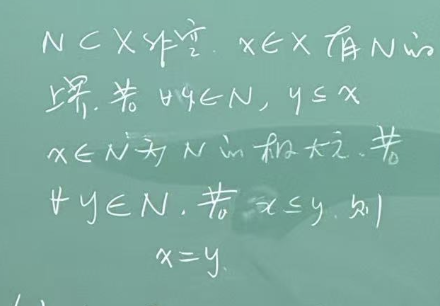 N⊂X非空. x∈X 有N的
上界. 若 ∀y∈N, y≤x
x∈N为 N的极大元. 若
∀y∈N. 若 x≤y. 则
x=y.